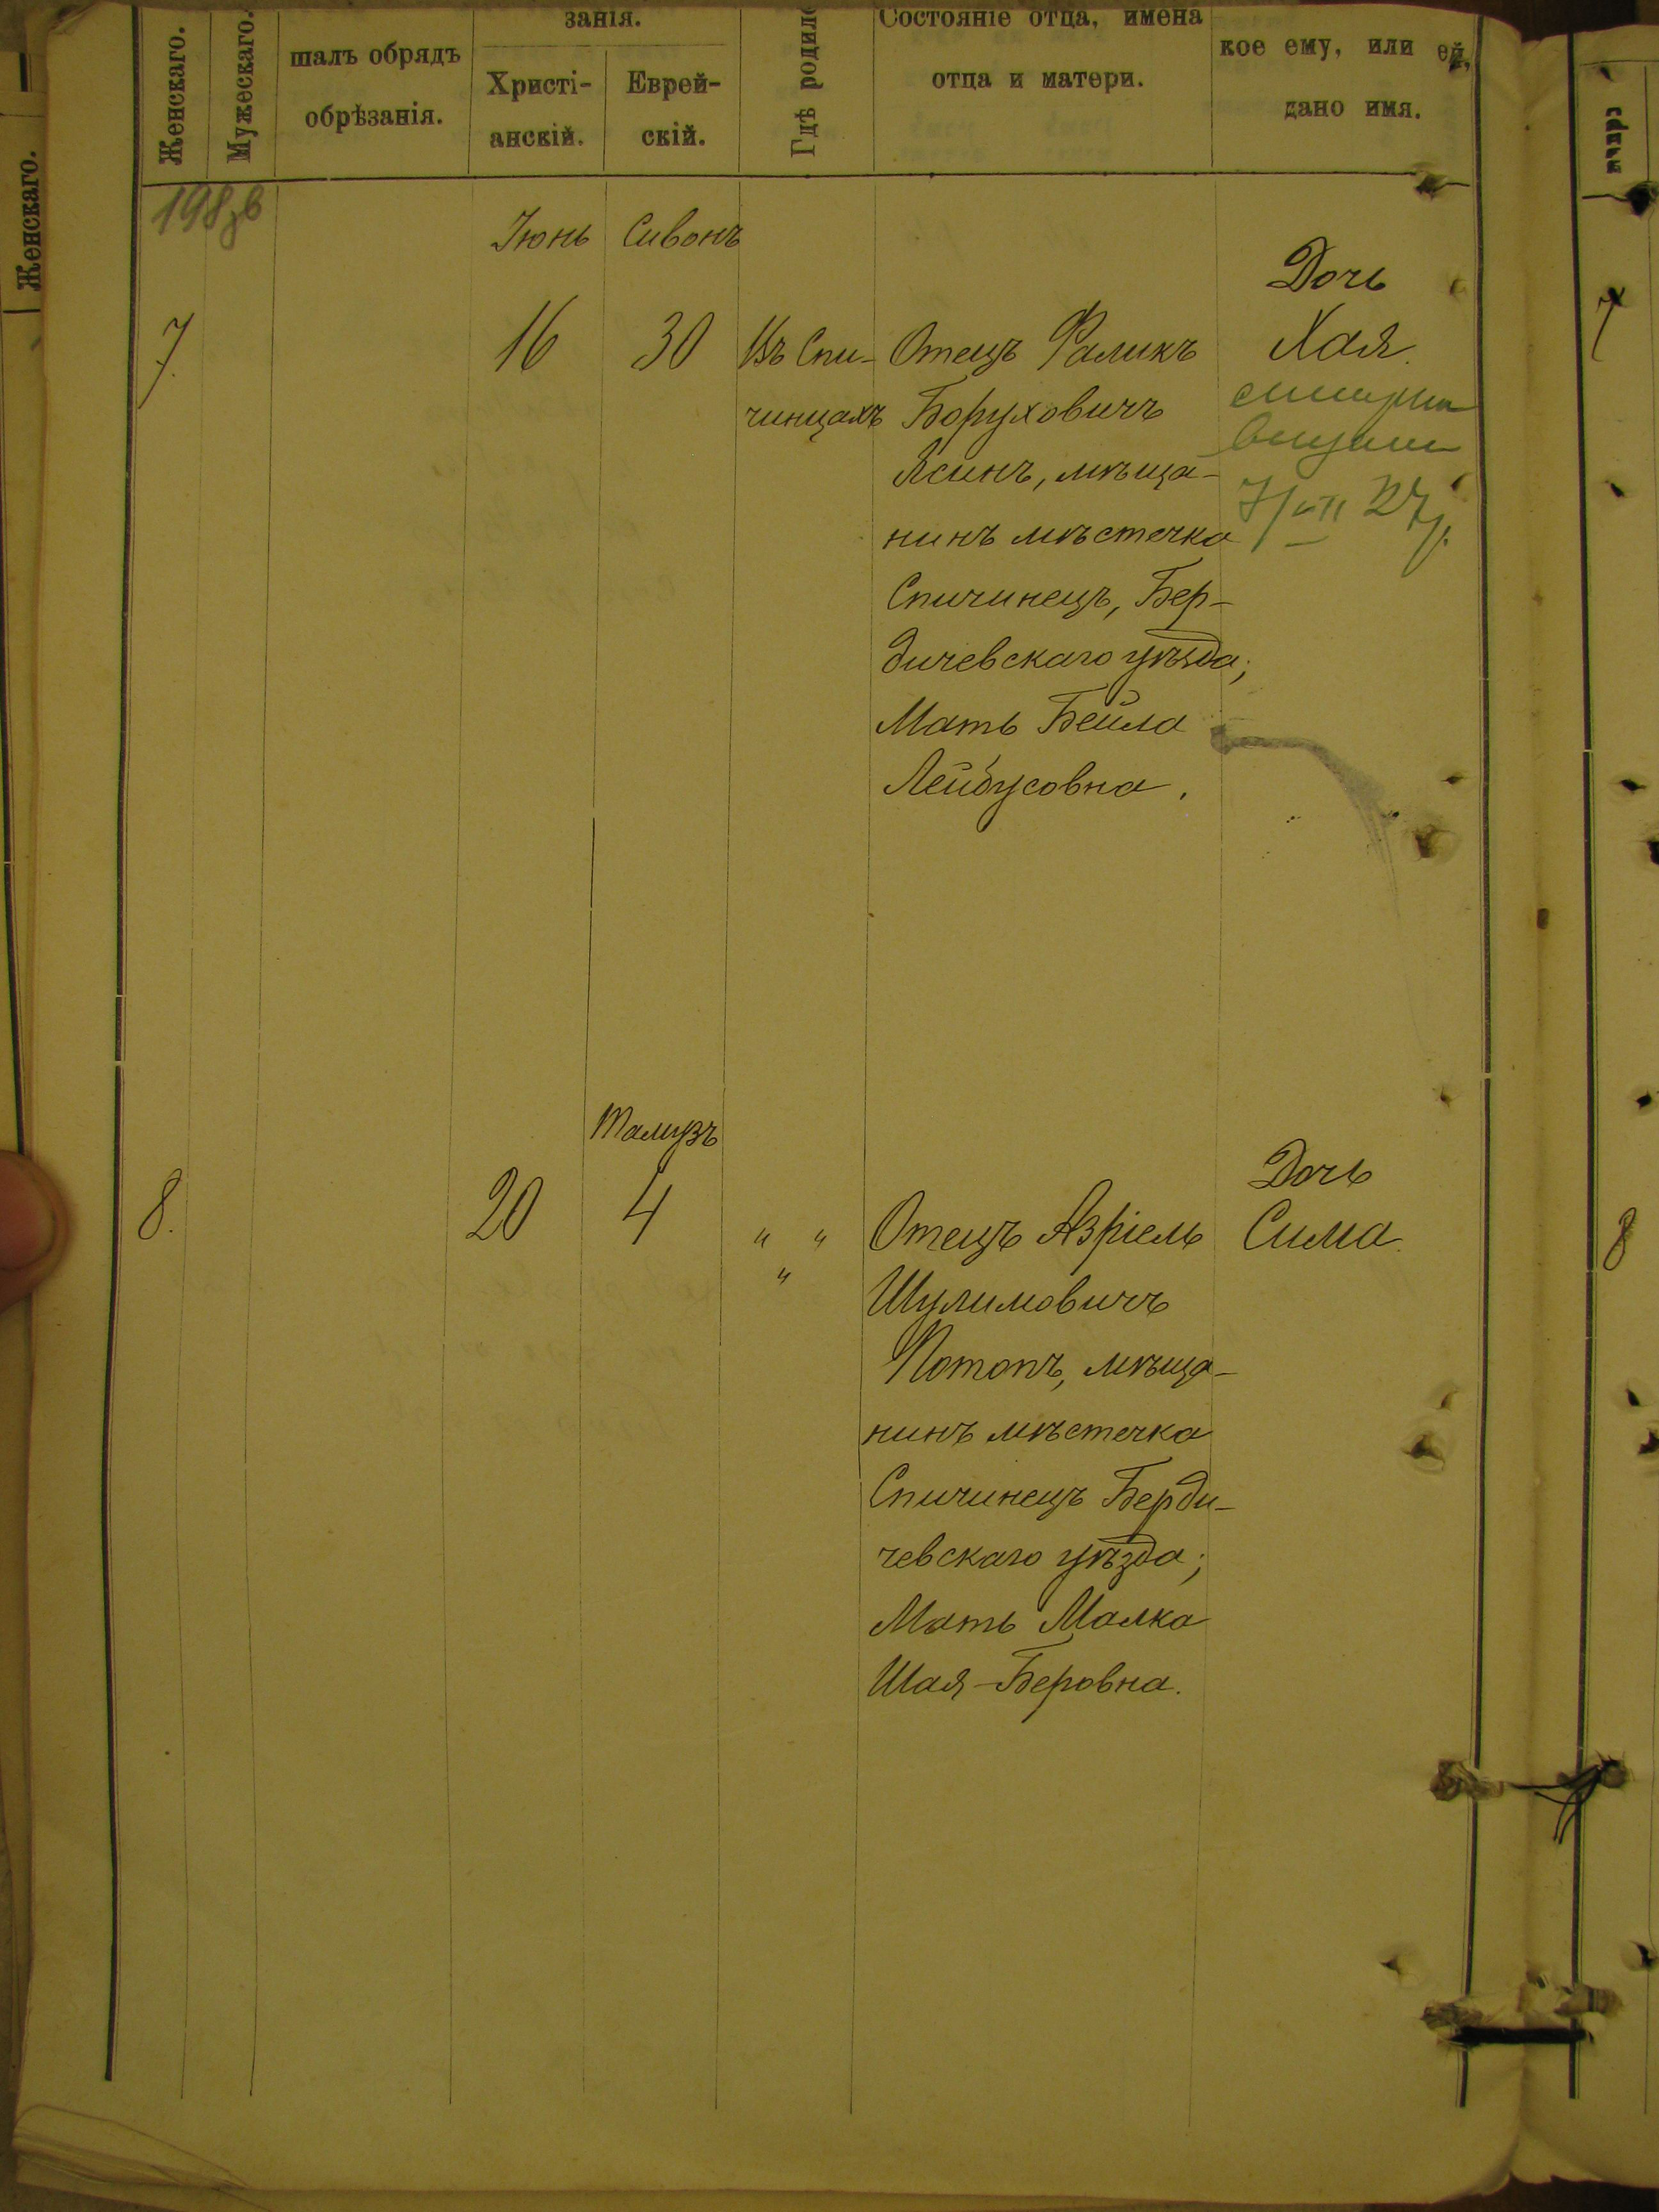 Женскаго.
Женскаго.
Мужескаго.
шалъ обрядъ
обрѣзанія.
занія.
Христі-
анскій.
Еврей-
скій.
Гдѣ родилс
Состояніе отца, имена
отца и матери.
кое ему, или ей,
дано имя.
198зв
Іюнь Сивонъ
7.
16
30
Въ Спи-
чинцахъ
Отецъ Фаликъ
Боруховичъ
Ясинъ, мѣща-
нинъ мѣстечка
Спичинецъ, Бер-
дичевскаго уѣзда;
Мать Бейла
Лейбусовна.
Дочь
Хая.
7/VII 27 р.
7
8.
20
Тамузъ
4
" "
"
Отецъ Азріель
Шулимовичъ
Потопъ, мѣща-
нинъ мѣстечка
Спичинецъ Берди-
чевскаго уѣзда;
Мать Малка
Шая-Беровна.
Дочь
Сима.
8